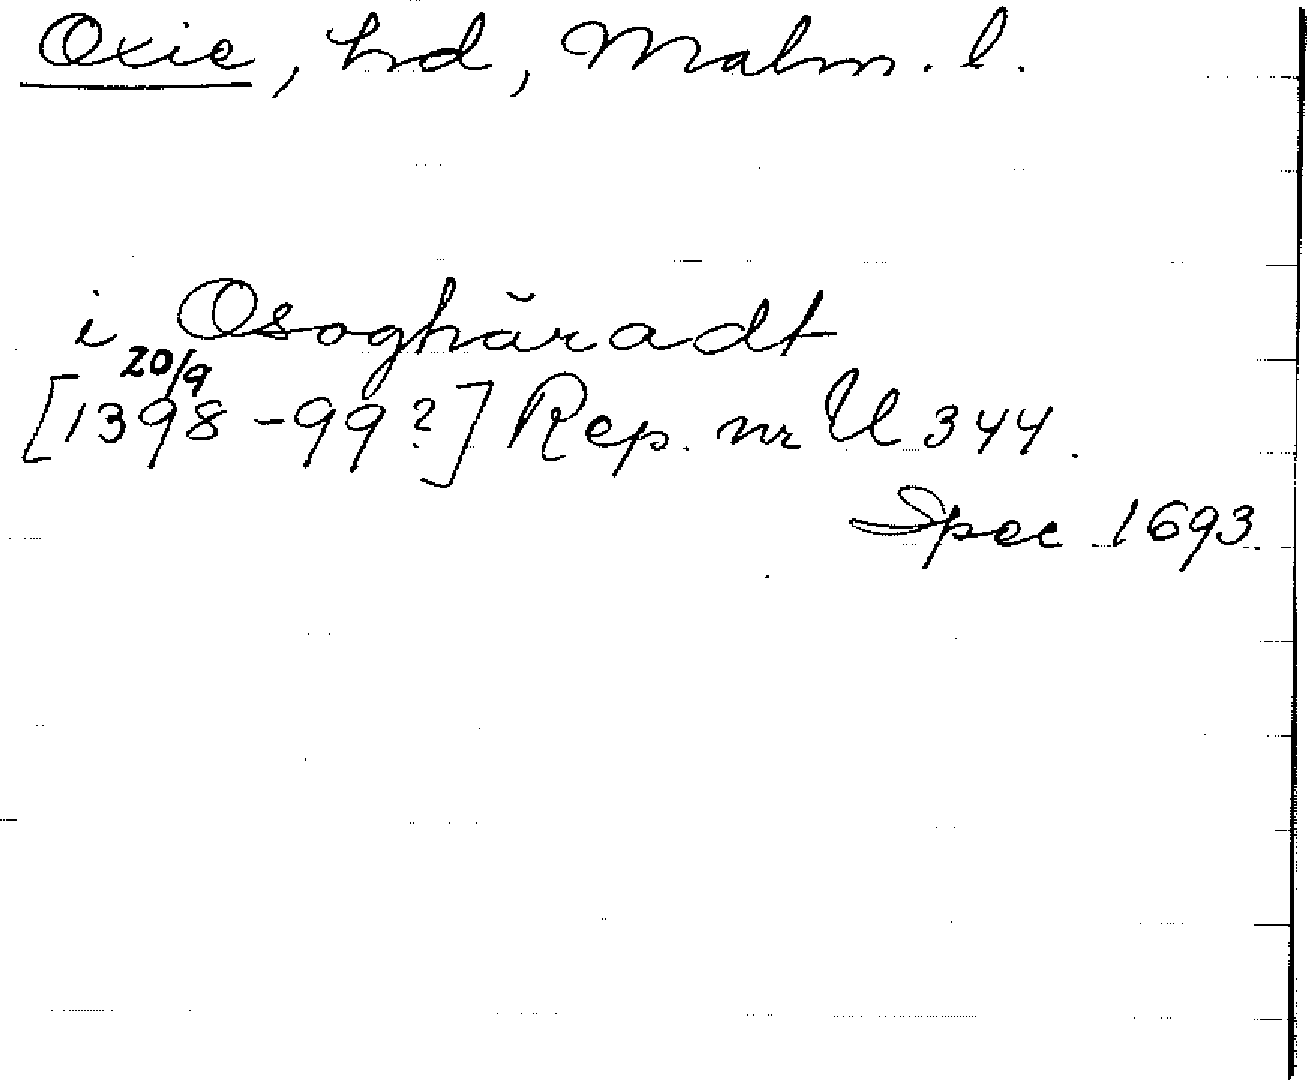 Oxie, hd, Malm. l.
i Osoghäradt
20/9
[1398-99?] Rep. nr U 344.
Spec 1693.